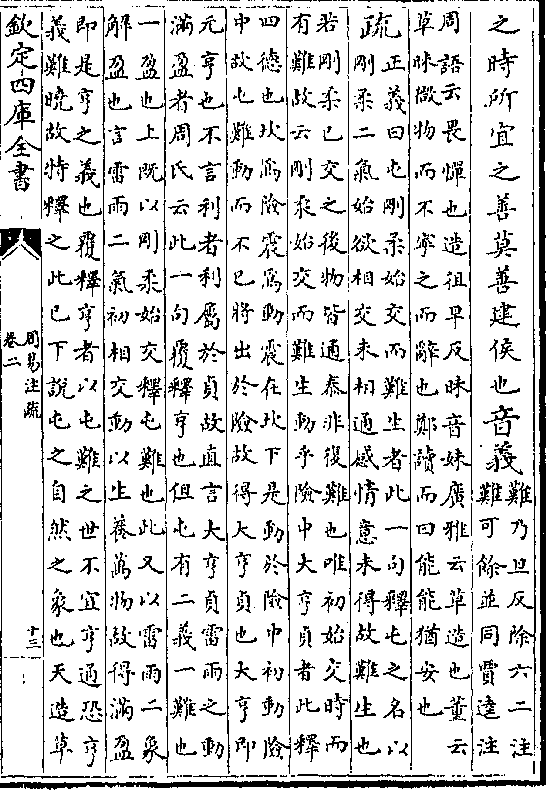 之時所宜之善莫善建侯也音義難乃旦反除六二注
難可餘並同賈逵注
周語云畏憚也造徂早反昧音妹廣雅云草造也董云
草昧微物而不寧之而辭也鄭讀而曰能能猶安也
疏正義曰屯剛柔始交而難生者此一句釋屯之名以
剛柔二氣始欲相交未相通感情意未得故難生也
若剛柔已交之後物皆通泰非復難也唯初始交時而
有難故云剛柔始交而難生動乎險中大亨貞者此釋
四德也坎為險震為動震在坎下是動於險中初動險
中故屯難動而不已將出於險故得大亨貞也大亨即
元亨也不言利者利屬於貞故直言大亨貞雷雨之動
滿盈者周氏云此一句覆釋亨也但屯有二義一難也
一盈也上既以剛柔始交釋屯難也此又以雷雨二象
解盈也言雷雨二氣初相交動以生養萬物故得滿盈
即是亨之義也覆釋亨者以屯難之世不宜亨通恐亨
義難曉故特釋之此已下說屯之自然之象也天造草
欽定四庫全書
周易注疏
卷二
十三